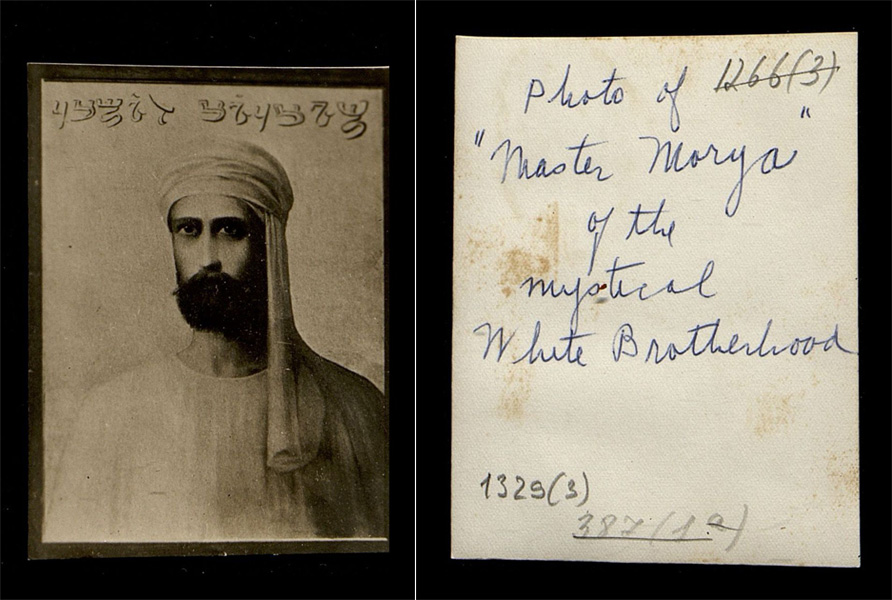 Photo of 1266(3)
"Master Morya"
of the
mystical
White Brotherhood
1329(3)
387(1a)